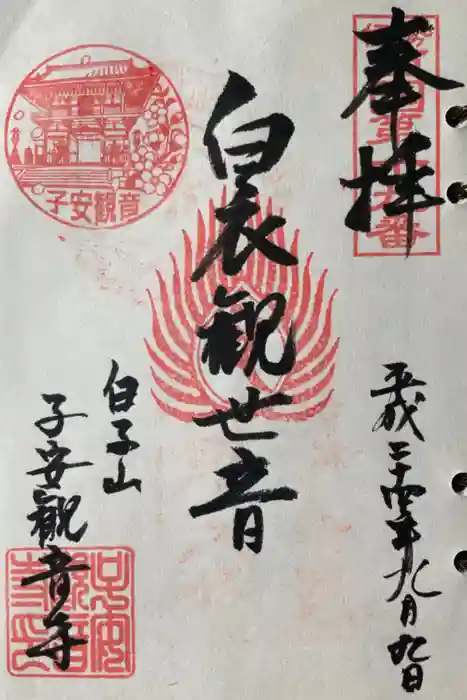 奉拝
平成二十四年九月九日
白衣観世音
白子山
子安観音寺
子安観音